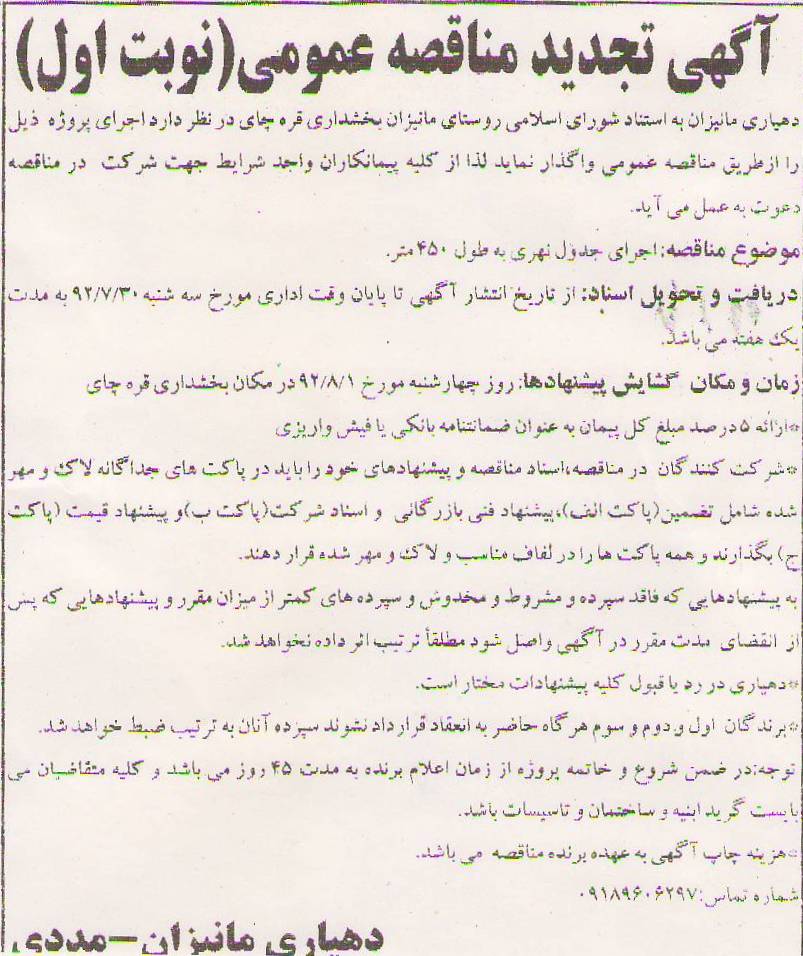 آگهی تجدید مناقصه عمومی(نوبت اول)
دهیاری مانیزان به استناد شورای اسلامی روستای مانیزان بخشداری قره چای در نظر دارد اجرای پروژه ذیل
را ازطریق مناقصه عمومی واگذار نماید لذا از کلیه پیمانکاران واجد شرایط جهت شرکت در مناقصه
دعوت به عمل می آید.
موضوع مناقصه: اجرای جدول نهری به طول ۴۵۰ متر.
دریافت و تحویل اسناد: از تاریخ انتشار آگهی تا پایان وقت اداری مورخ سه شنبه ۹۲/۷/۳۰ به مدت
یک هفته می باشد.
زمان و مکان گشایش پیشنهادها: روز چهارشنبه مورخ ۹۲/۸/۱ در مکان بخشداری قره چای
*ارائه ۵ درصد مبلغ کل پیمان به عنوان ضمانتنامه بانکی یا فیش واریزی
*شرکت کنندگان در مناقصه،اسناد مناقصه و پیشنهادهای خود را باید در پاکت های جداگانه لاک و مهر
شده شامل تضمین(پاکت الف)،پیشنهاد فنی بازرگانی و اسناد شرکت(پاکت ب)و پیشنهاد قیمت (پاکت
ج) بگذارند و همه پاکت ها را در لفاف مناسب و لاک و مهر شده قرار دهند.
به پیشنهادهایی که فاقد سپرده و مشروط و مخدوش و سپرده های کمتر از میزان مقرر و پیشنهادهایی که پس
از انقضای مدت مقرر در آگهی واصل شود مطلقاً ترتیب اثر داده نخواهد شد.
*دهیاری در رد یا قبول کلیه پیشنهادات مختار است.
*برندگان اول و دوم و سوم هرگاه حاضر به انعقاد قرارداد نشوند سپرده آنان به ترتیب ضبط خواهد شد.
توجه:در ضمن شروع و خاتمه پروژه از زمان اعلام برنده به مدت ۴۵ روز می باشد و کلیه متقاضیان می
بایست گرید ابنیه و ساختمان و تاسیسات باشد.
*هزینه چاپ آگهی به عهده برنده مناقصه می باشد.
شماره تماس:۰۹۱۸۹۶۰۶۲۹۷
دهیاری مانیزان-مددی